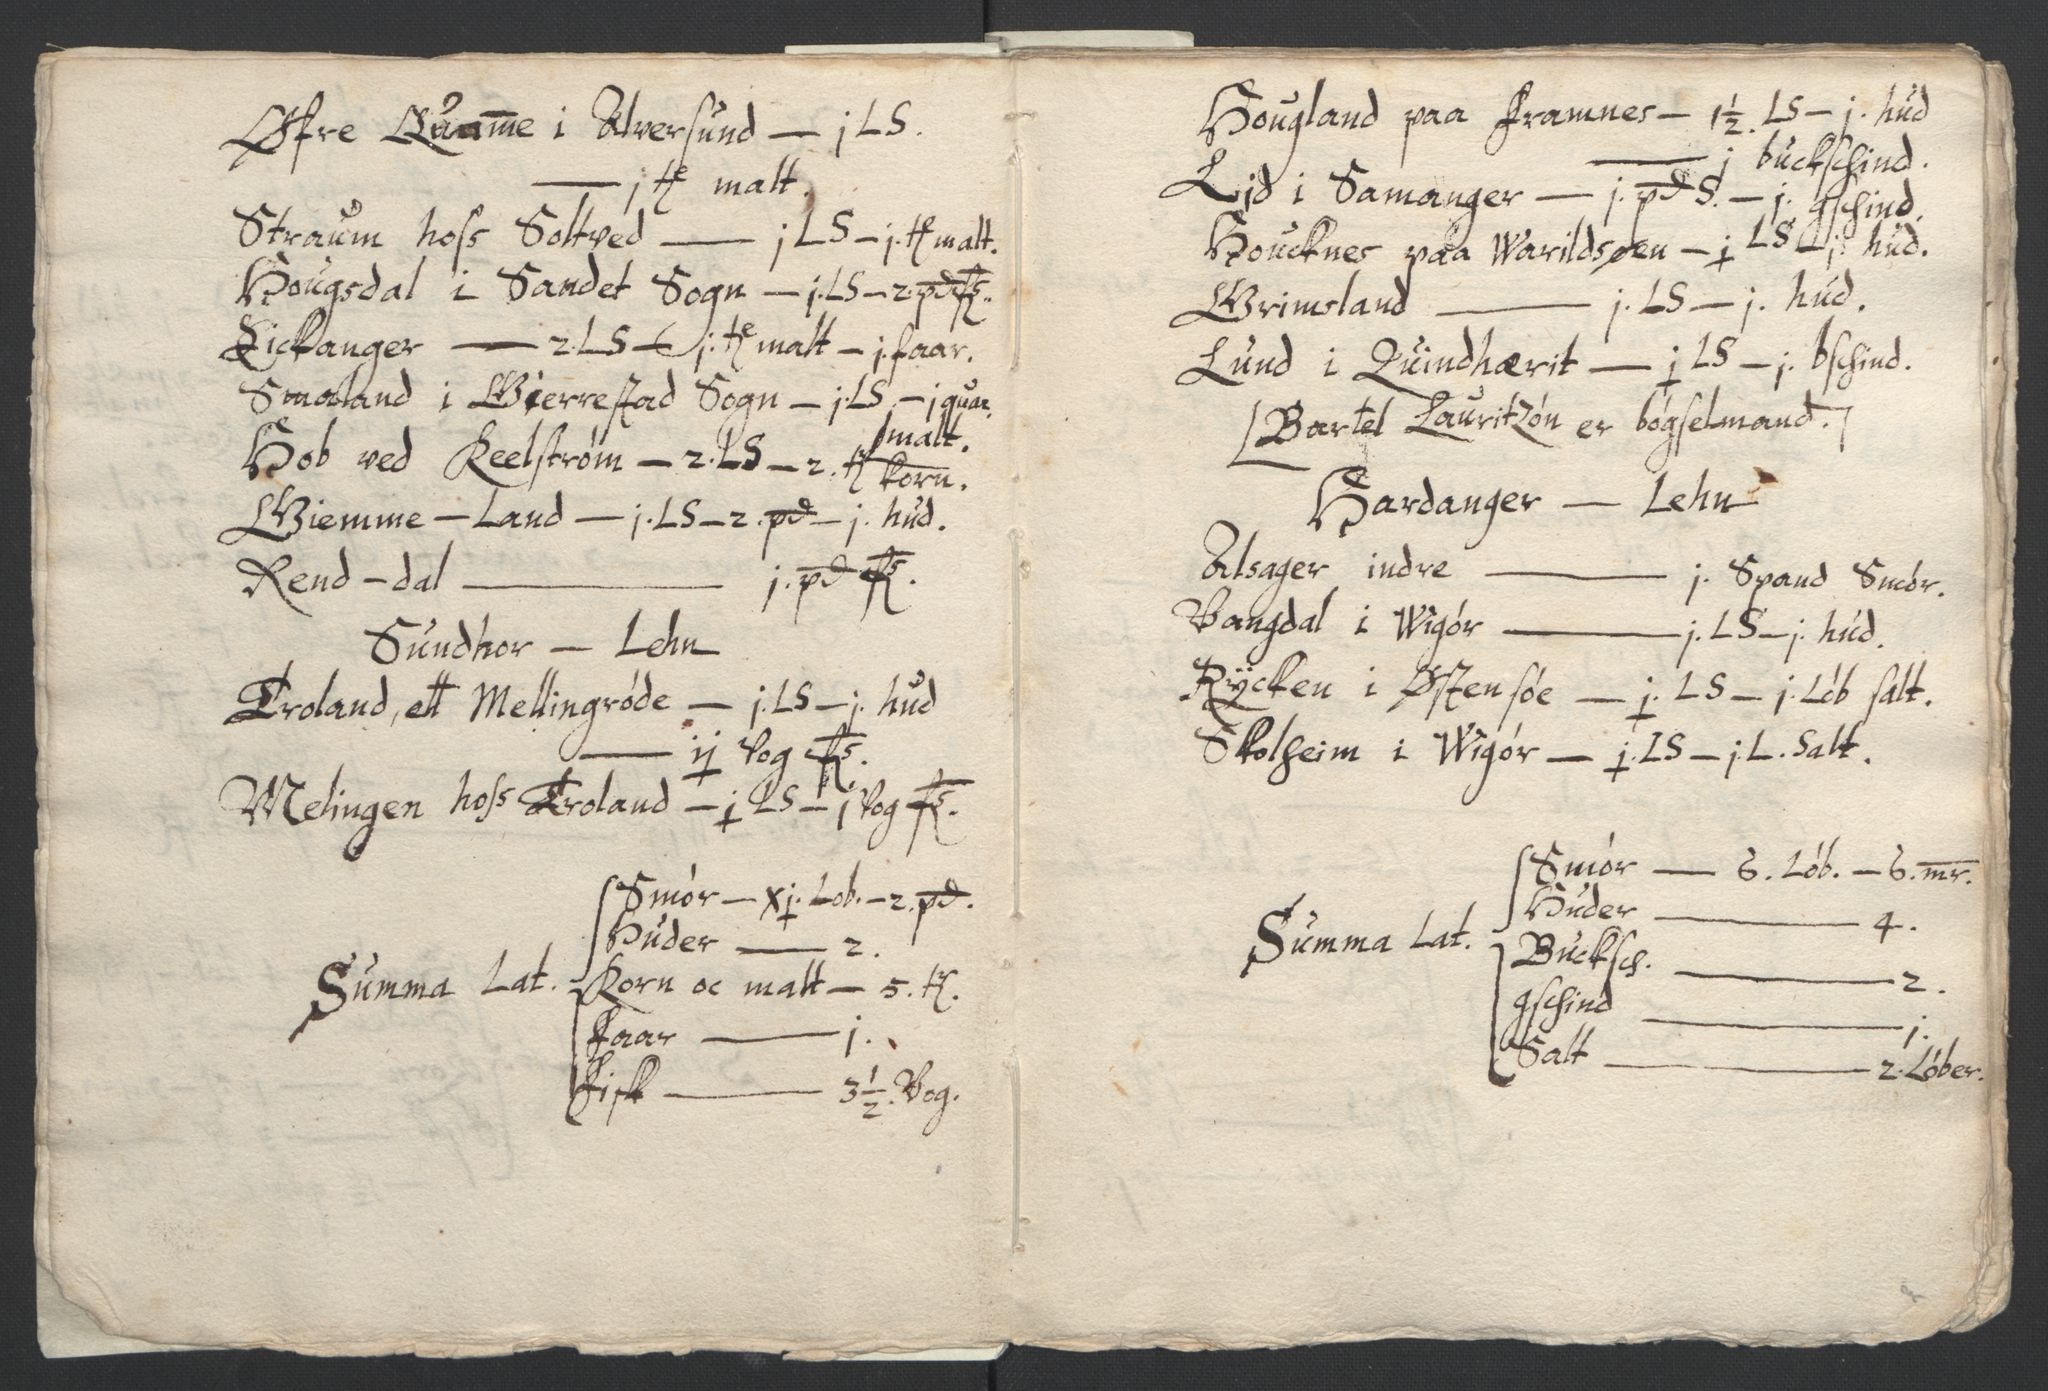 Øfre Quamme i Alversund — j LS.
— j tr malt.
Straum hoss Soltved — j LS — j. tr malt.
Hougsdal i Sandet Sogn — j. LS — 2. pd fs.
Eickanger — 2. LS — j. tr malt — j. faar.
Smaland i Gierrestad Sogn — j. LS — j quar. malt.
Hob ved Keelstróm — 2. LS — 2. tr korn.
Giemme-land — j. LS — 2. pd — j. hud.
Rend-dal — j. pd fs.
Sundhor — Lehn
Troland, ett Mellingróde — j. LS — j. hud
— ij Vog fs.
Melingen hoss Troland — j LS — j Vog fs.
Summa Lat.
Smór — xj. Lob. — 2. pd.
Huder — 2.
Korn oc malt — 5. tr.
Faar — j.
Fisk — 3 1/2. Vog.
Hougland paa Framnes — 1 1/2. LS — j. hud
— j buckschind.
Lid i Samanger — j. pd S. — j. gschind.
Houcknes paa Warildsøen — j LS — j. hud.
Grimsland — j. LS — j. hud.
Lund i Quindhærit — j LS — j. bschind.
[Bartel Lauritzón er bógselmand.]
Hardanger — Lehn
Alsager indre — j. Spand Smór.
Vangdal i Wigór — j. LS — j. hud.
Rÿcken i Østensóe — j. LS — j. Lób salt.
Skolheim i Wigór — j. LS — j. L. Salt.
Summa Lat.
Smór — 6. Lób. — 6. mr.
Huder — 4.
Bucksch. — 2.
gschind — j.
Salt — 2. Lóber.